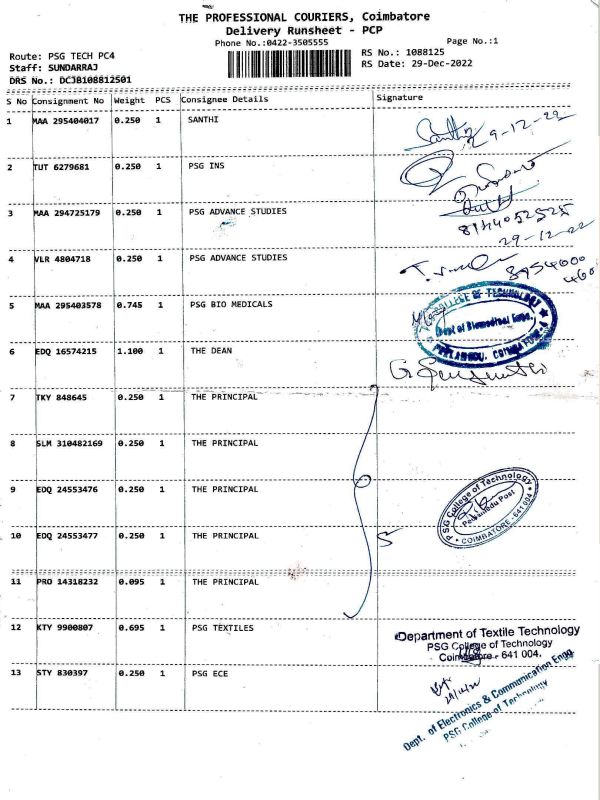 THE PROFESSIONAL COURIERS, Coimbatore
Delivery Runsheet - PCP
Phone No.:0422-3505555
Page No.:1
Route: PSG TECH PC4
RS No.: 1088125
Staff: SUNDARRAJ
RS Date: 29-Dec-2022
DRS No.: DCJB108812501
S No Consignment No Weight PCS Consignee Details Signature
1 MAA 295404017 0.250 1 SANTHI
Santhi
29-12-22
2 TUT 6279681 0.250 1 PSG INS
3 MAA 294725179 0.250 1 PSG ADVANCE STUDIES
29-12-22
4 VLR 4804718 0.250 1 PSG ADVANCE STUDIES
5 MAA 295403578 0.745 1 PSG BIO MEDICALS
COLLEGE OF TECHNOLOGY
Dept of Biomedical Engg.
PEELAMEDU, COIMBATORE-4
6 EDQ 16574215 1.100 1 THE DEAN
7 TKY 848645 0.250 1 THE PRINCIPAL
8 SLM 310482169 0.250 1 THE PRINCIPAL
9 EDQ 24553476 0.250 1 THE PRINCIPAL
PSG College of Technology
Peelamedu Post
COIMBATORE - 641 004
10 EDQ 24553477 0.250 1 THE PRINCIPAL
5
11 PRO 14318232 0.095 1 THE PRINCIPAL
12 KTY 9900807 0.695 1 PSG TEXTILES
Department of Textile Technology
PSG College of Technology
Coimbatore - 641 004.
13 STY 830397 0.250 1 PSG ECE
Dept. of Electronics & Communication Engg
PSG College of Technology